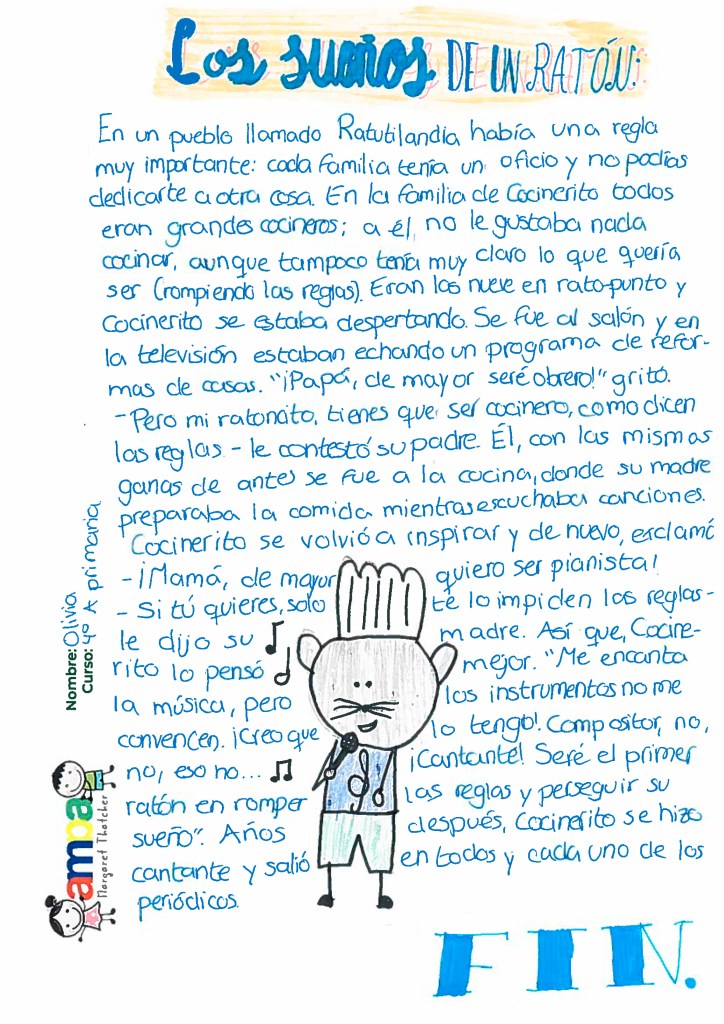 Los sueños DE UN RATÓN:
En un pueblo llamado Ratutilandia había una regla
muy importante: cada familia tenía un oficio y no podías
dedicarte a otra cosa. En la familia de Cocinerito todos
eran grandes cocineros; a él, no le gustaba nada
cocinar, aunque tampoco tenía muy claro lo que quería
ser (rompiendo las reglas). Eran las nueve en rato-punto y
Cocinerito se estaba despertando. Se fue al salón y en
la televisión estaban echando un programa de refor-
mas de casas. "¡Papá, de mayor seré obrero!" gritó.
-Pero mi ratoncito, tienes que ser cocinero, como dicen
las reglas - le contestó su padre. Él, con las mismas
ganas de antes se fue a la cocina, donde su madre
preparaba la comida mientras escuchaba canciones.
Cocinerito se volvió a inspirar y de nuevo, exclamó
-¡Mamá, de mayor quiero ser pianista!
- Si tú quieres, solo te lo impiden las reglas-
le dijo su madre. Así que, Cocine-
rito lo pensó mejor. "Me encanta
la música, pero los instrumentos no me
convencen. ¡Creo que lo tengo! Compositor, no,
no, eso no... ¡Cantante! Seré el primer
ratón en romper las reglas y perseguir su
sueño". Años después, Cocinerito se hizo
cantante y salió en todos y cada uno de los
periódicos.
FIN.
Nombre: Olivia
Curso: 4º A primaria
ampa
Margaret Thatcher